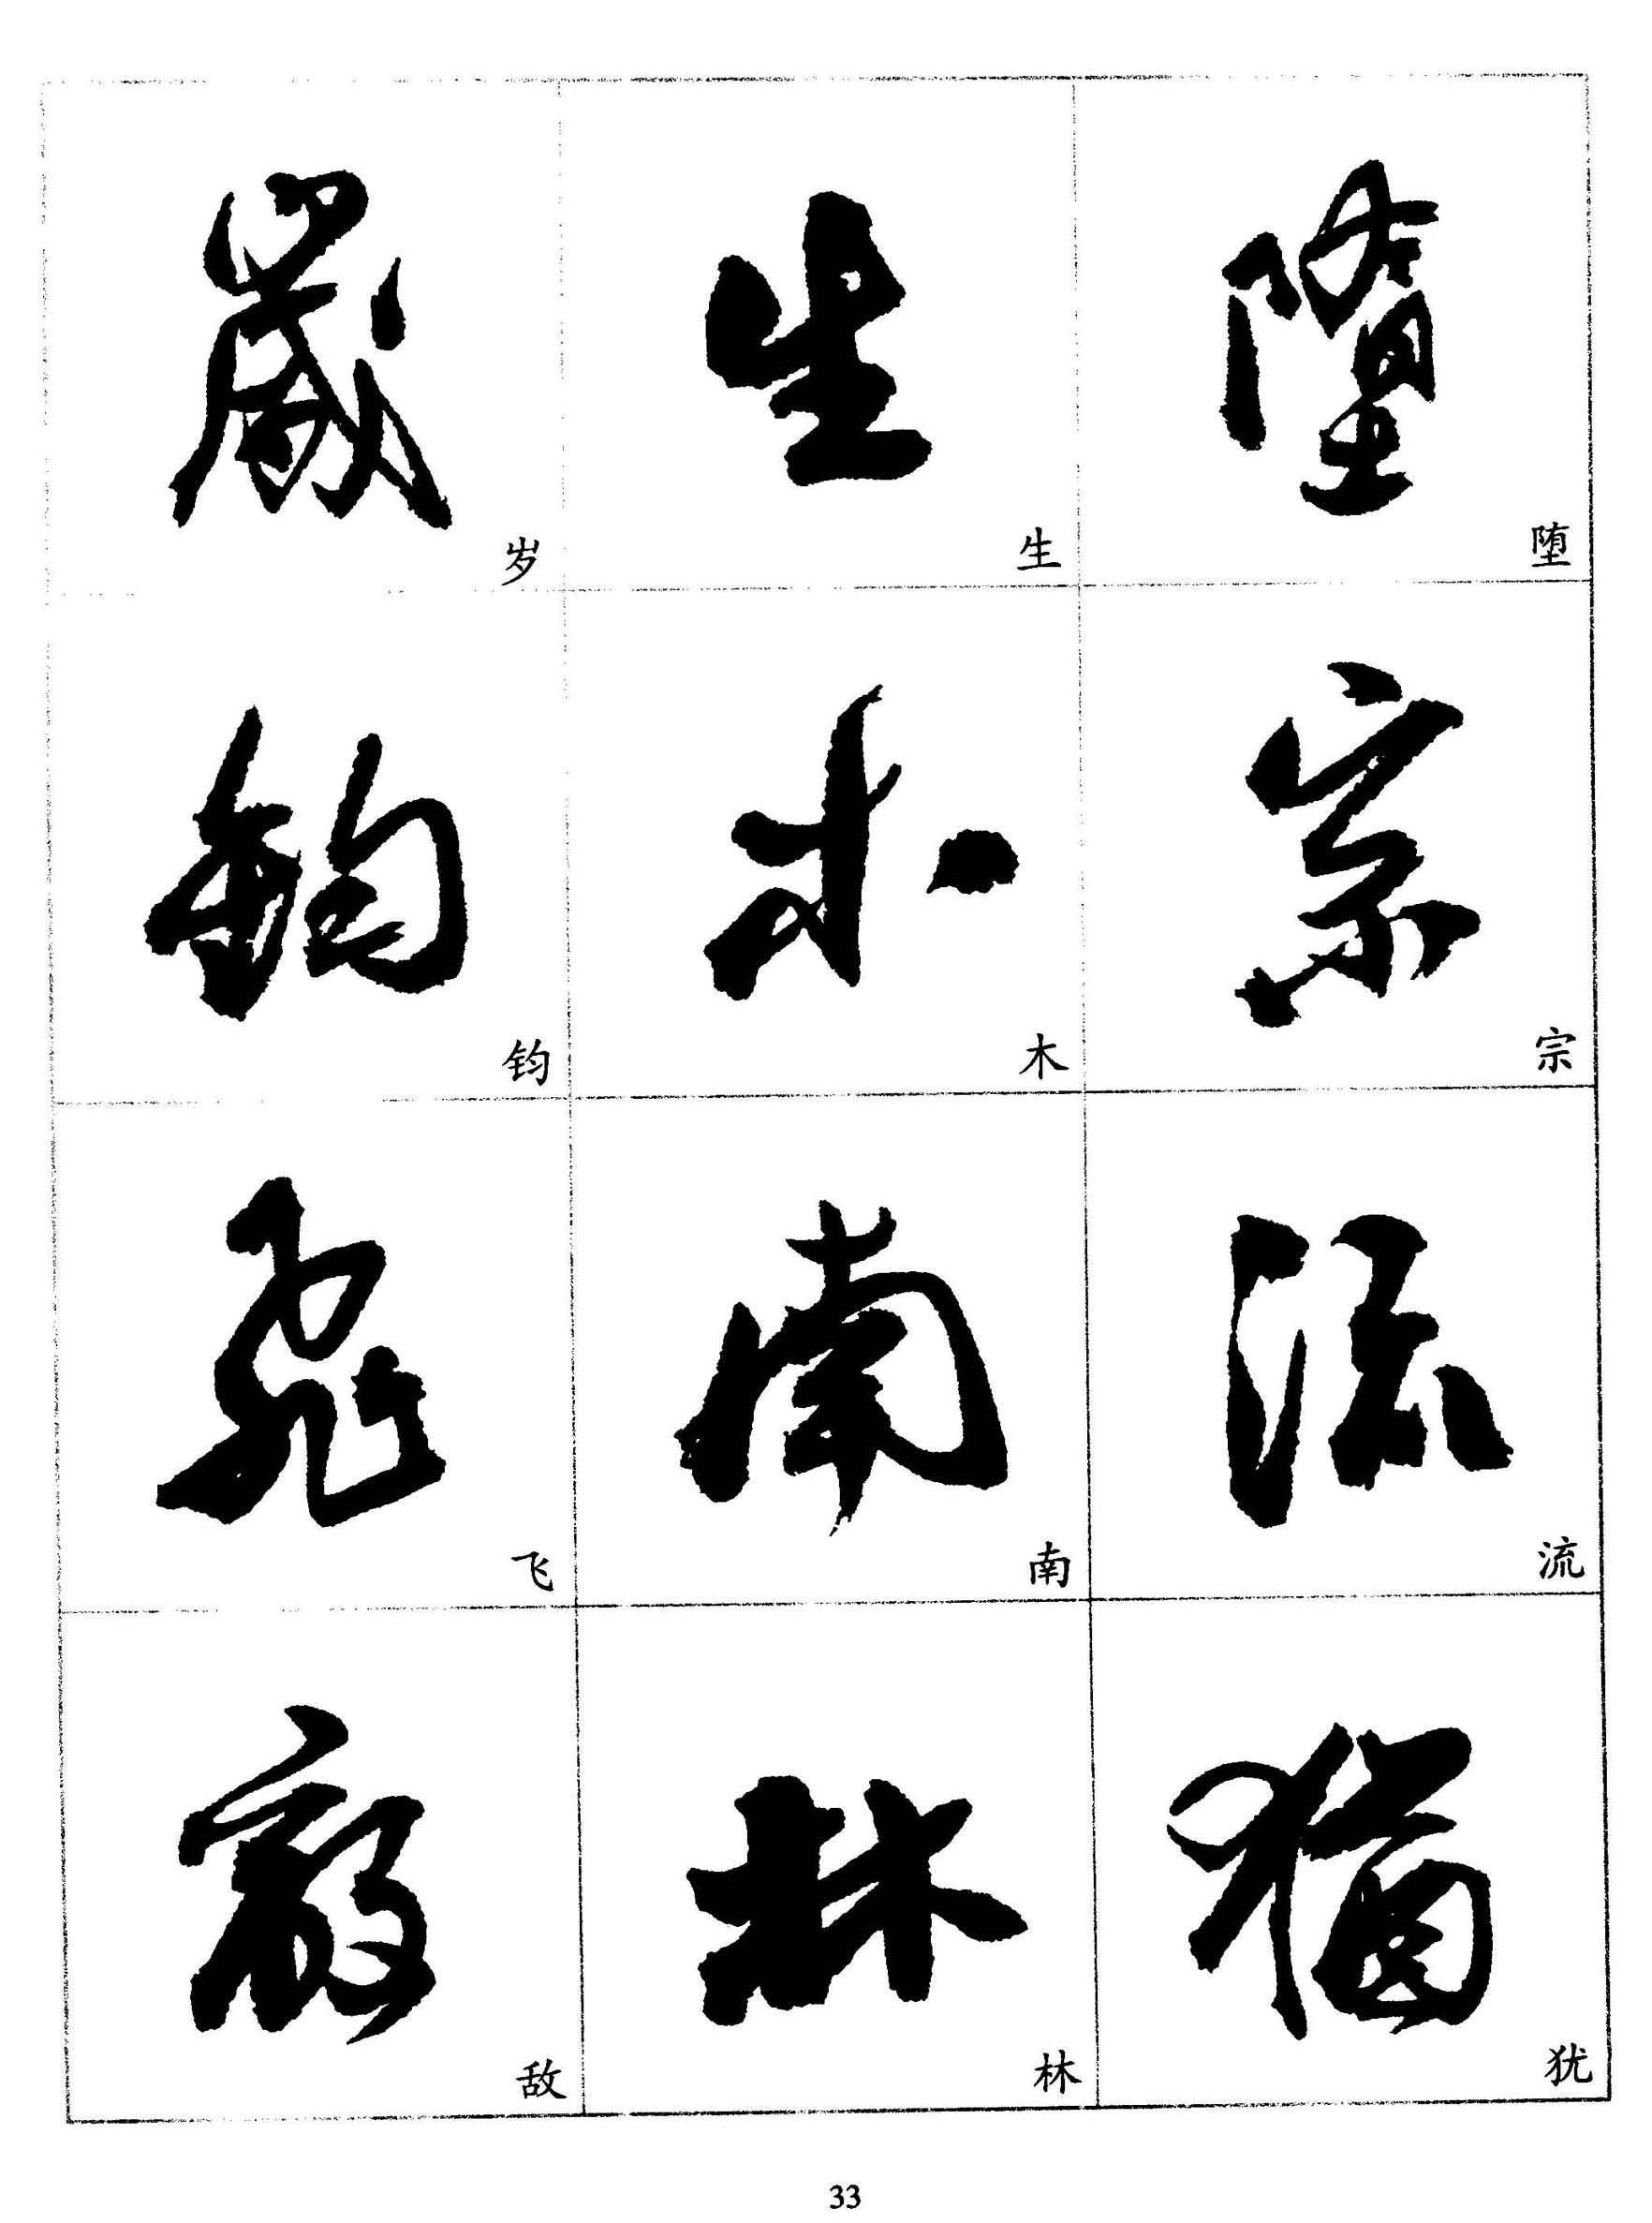 墮
堕
宗
宗
流
流
猶
犹
生
生
木
木
南
南
林
林
歲
岁
鈞
钧
飛
飞
敵
敌
33